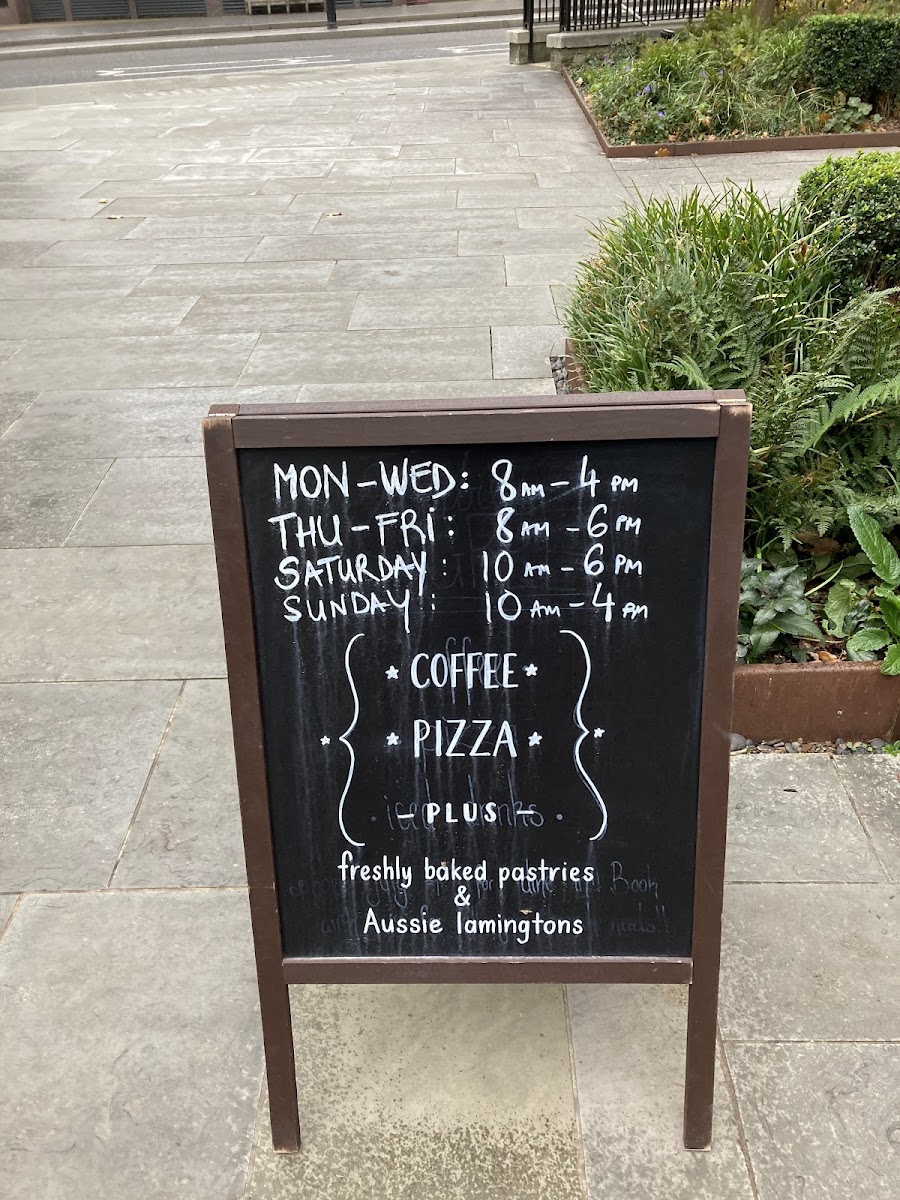 MON-WED: 8AM-4PM
THU-FRi: 8AM-6PM
SATURDAY: 10AM-6PM
SUNDAY: 10AM-4PM
* COFFEE *
* PIZZA *
- PLUS -
freshly baked pastries
&
Aussie lamingtons